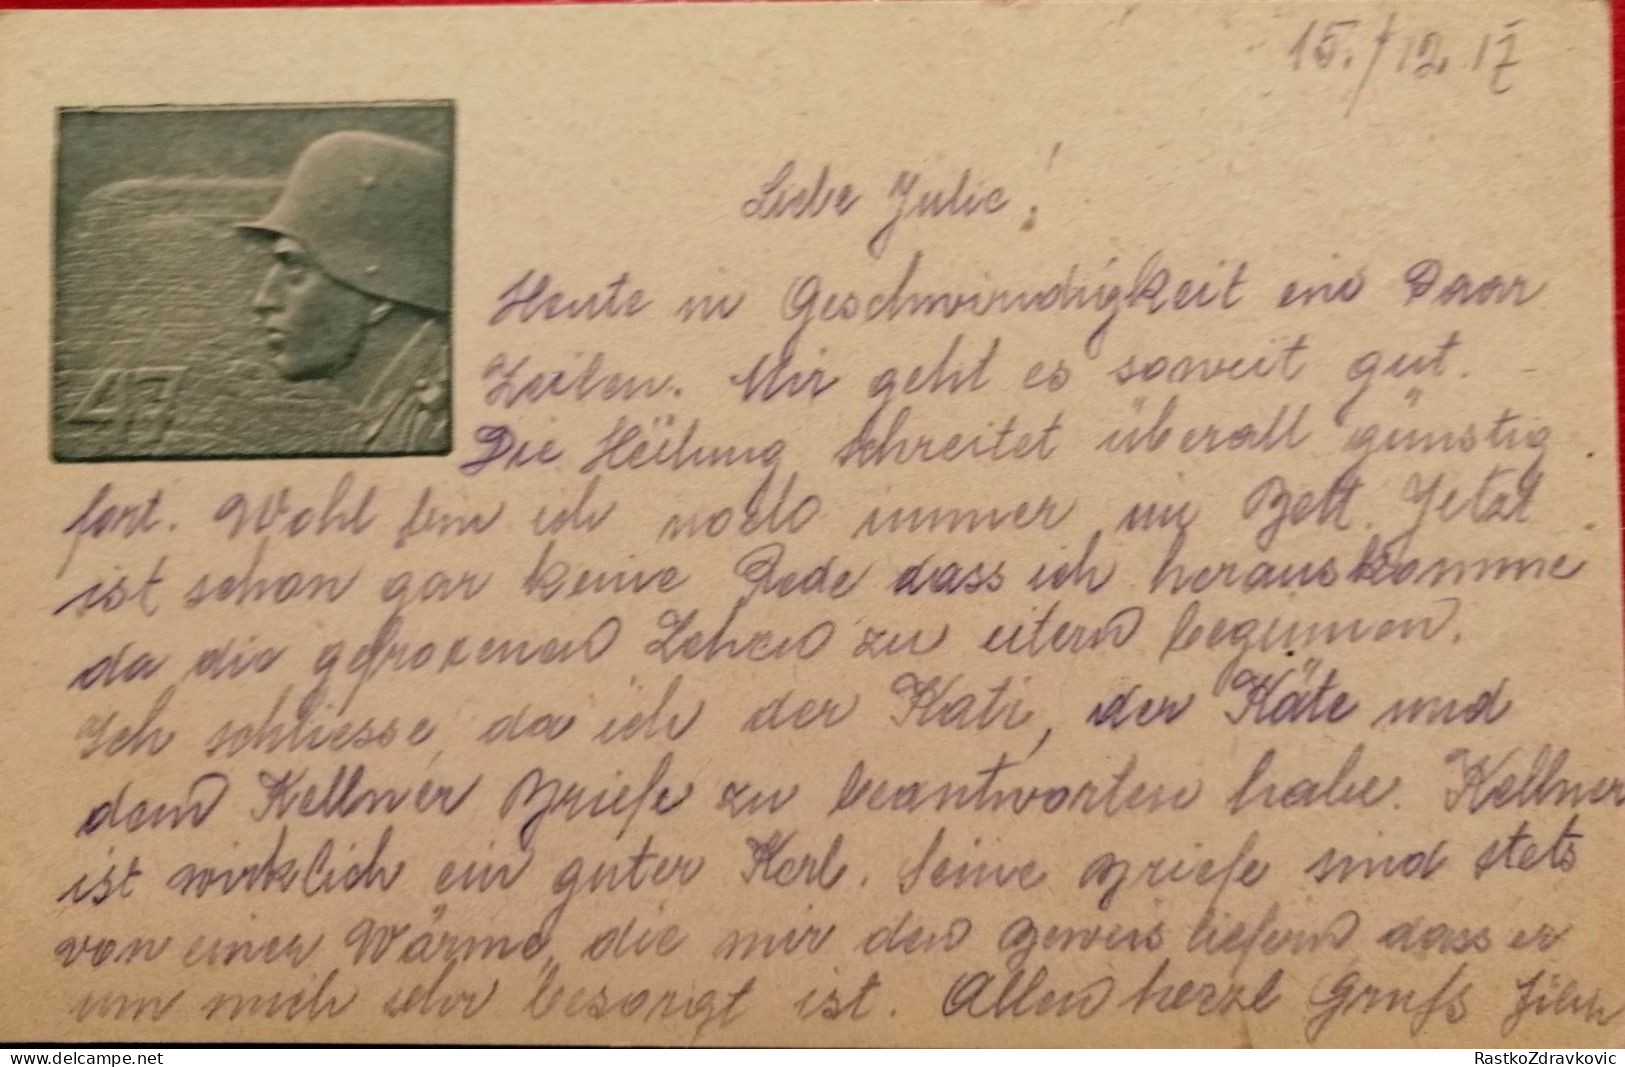 15./12.17
Liebe Julie!
Heute in Geschwindigkeit ein Paar
Zeilen. Mir geht es soweit gut.
Die Heilung schreitet überall günstig
fort. Wohl bin ich noch immer im Bett. Jetzt
ist schon gar keine Rede dass ich herauskomme
da die gefrorenen Zehen zu eitern beginnen.
Ich schliesse, da ich der Kati, der Käte und
dem Kellner Briefe zu beantworten habe. Kellner
ist wirklich ein guter Kerl. Seine Briefe sind stets
von einer Wärme, die mir den Beweis liefern dass er
um mich sehr besorgt ist. Allen herzl Gruss
47
RastkoZdravkovic
delcampe.net